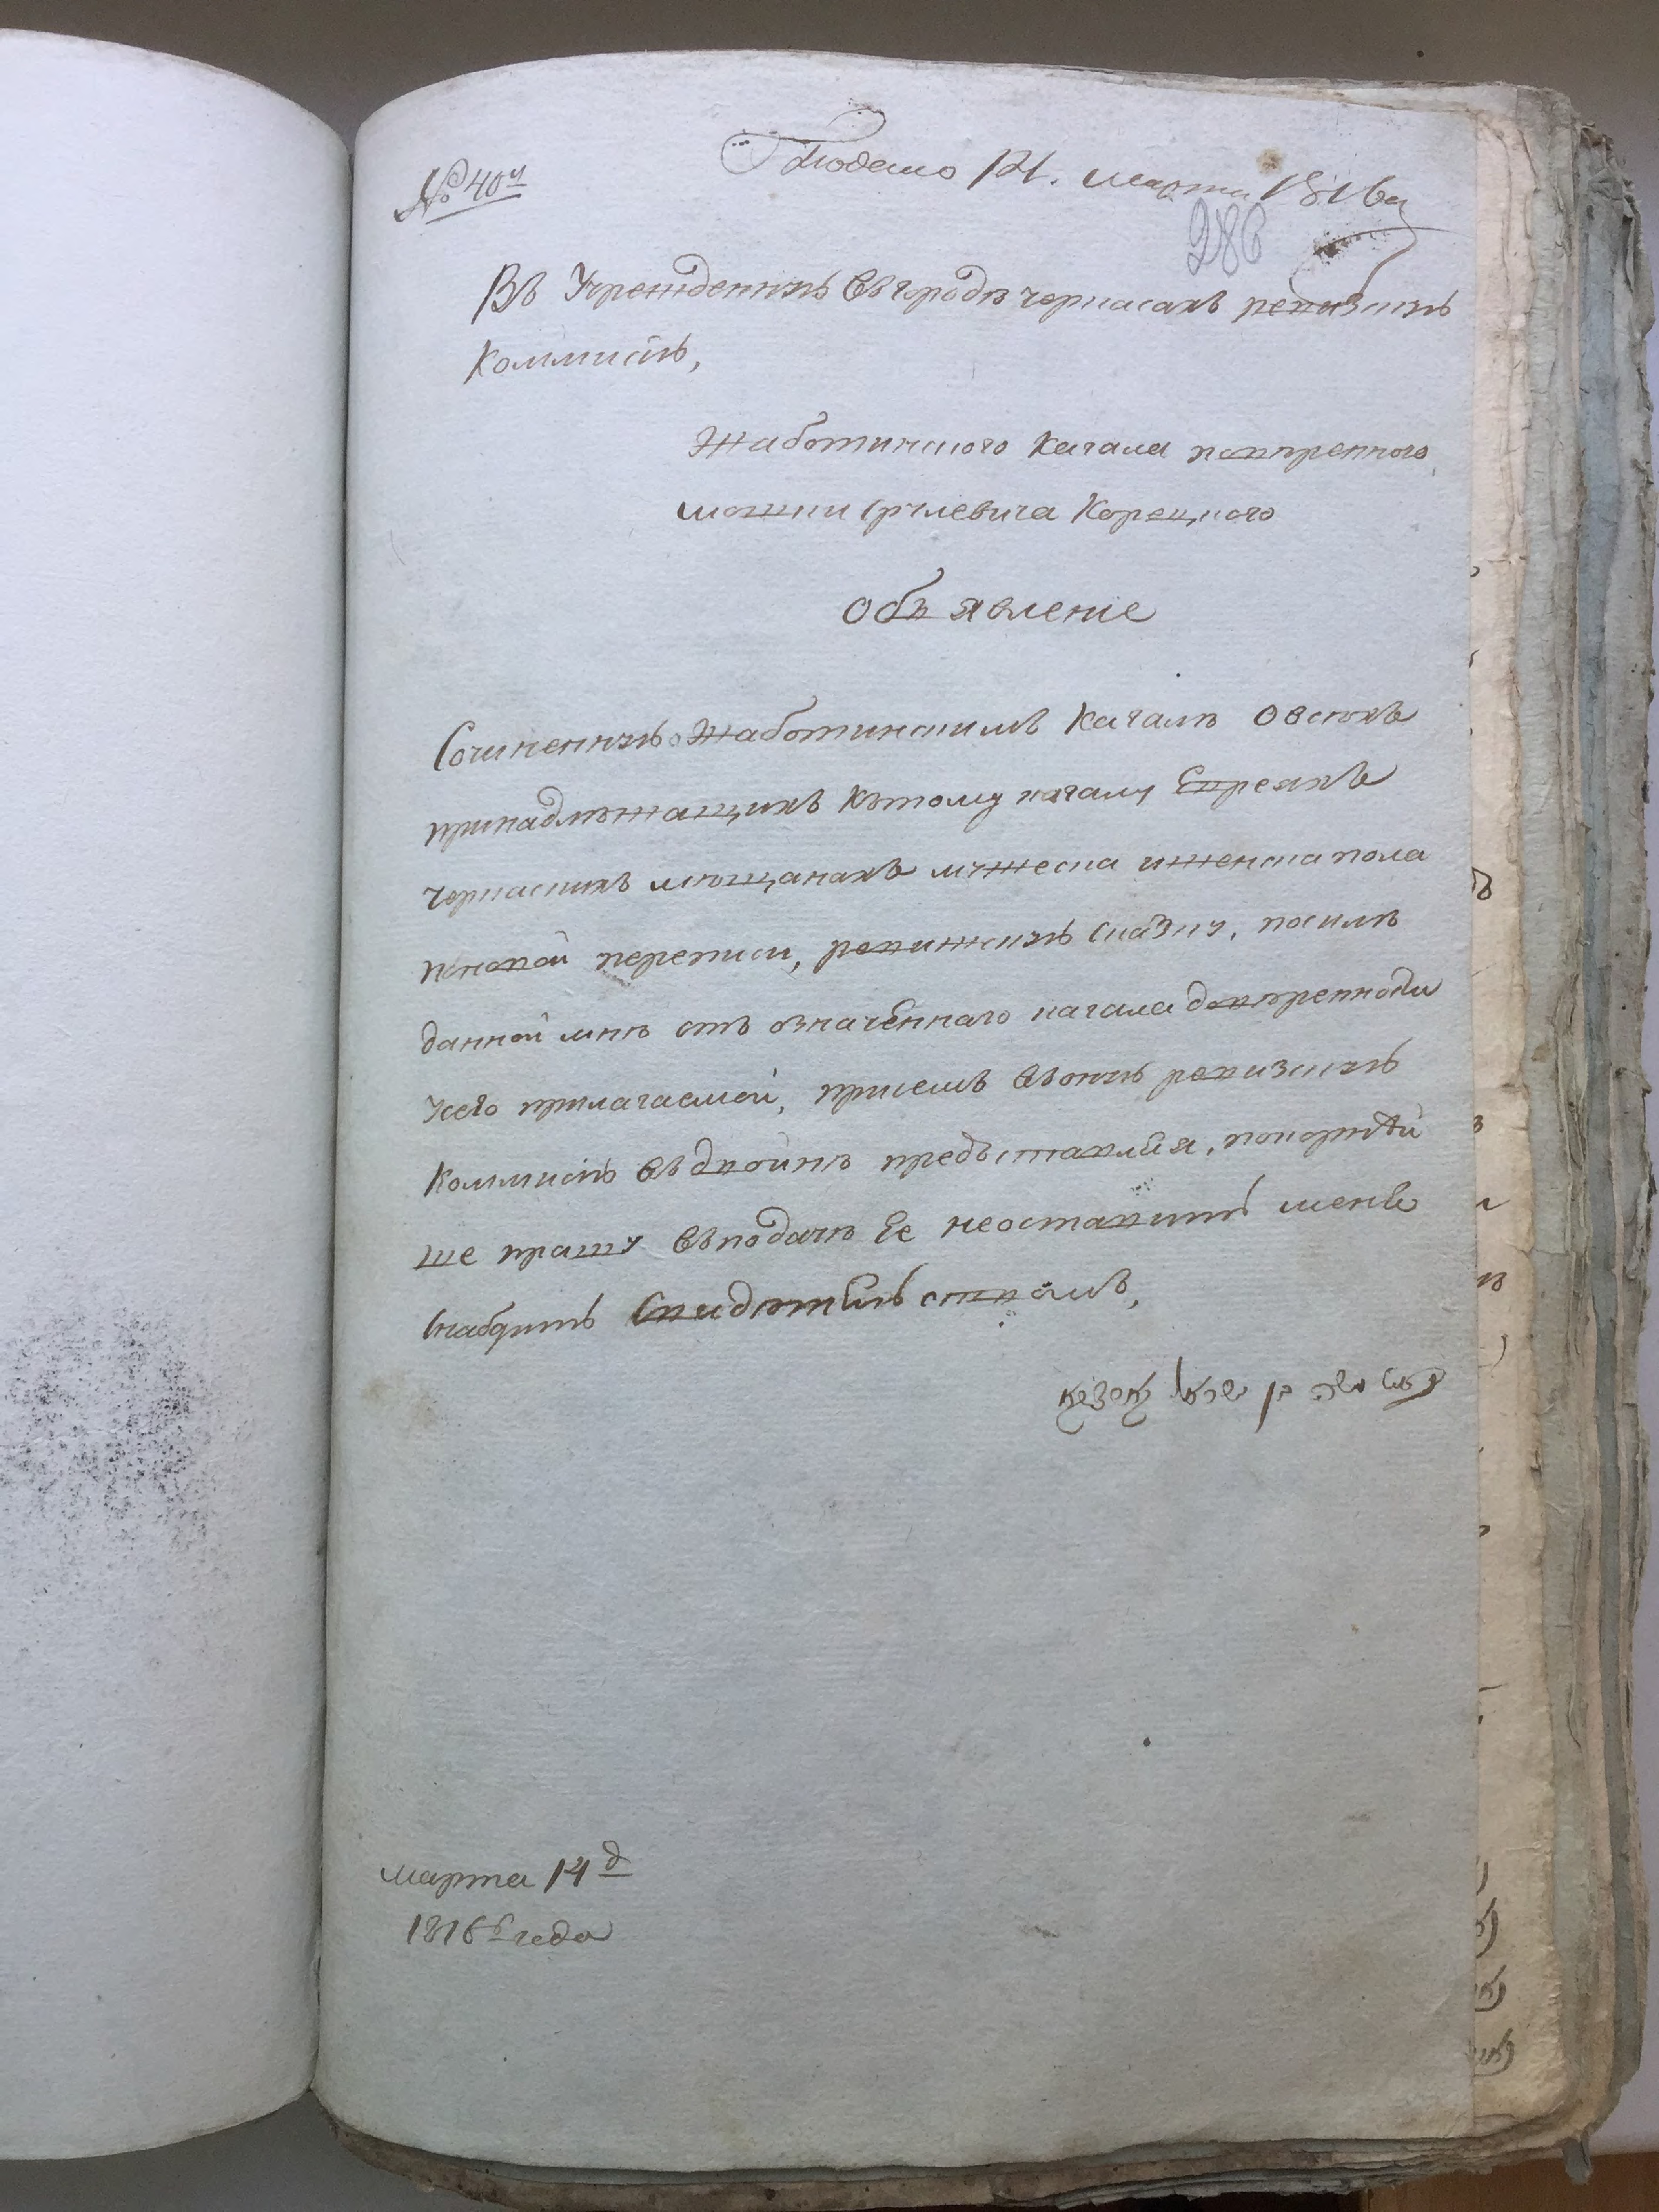 № 40й
Подано 14. марта 1816го
286
Въ Учрежденнꙋю въ городѣ черкасахъ ревизскꙋю
Коммисїю,
Жаботинского Кагала повѣренного
мошки Срꙋлевича Корецкого
Объявленїе
Сочиненнꙋю Жаботинскимъ Кагаломъ о всѣхъ
принадлѣжащихъ къ томꙋ кагалꙋ Евреяхъ
черкаскихъ мѣщанахъ мꙋжеска и женска пола
по новой переписи, ревижскꙋю сказкꙋ, по силѣ
данной мнѣ отъ означеннаго кагала довѣренности
ꙋ сего прилагаемой, при семъ въ онꙋю ревизскꙋю
Коммисїю въ двойнѣ предъставляя, покорнѣй
ше прошꙋ въ подачѣ Ее не оставить меня
снабдить Свидѣтельствомъ,
марта 14 д
1816го года